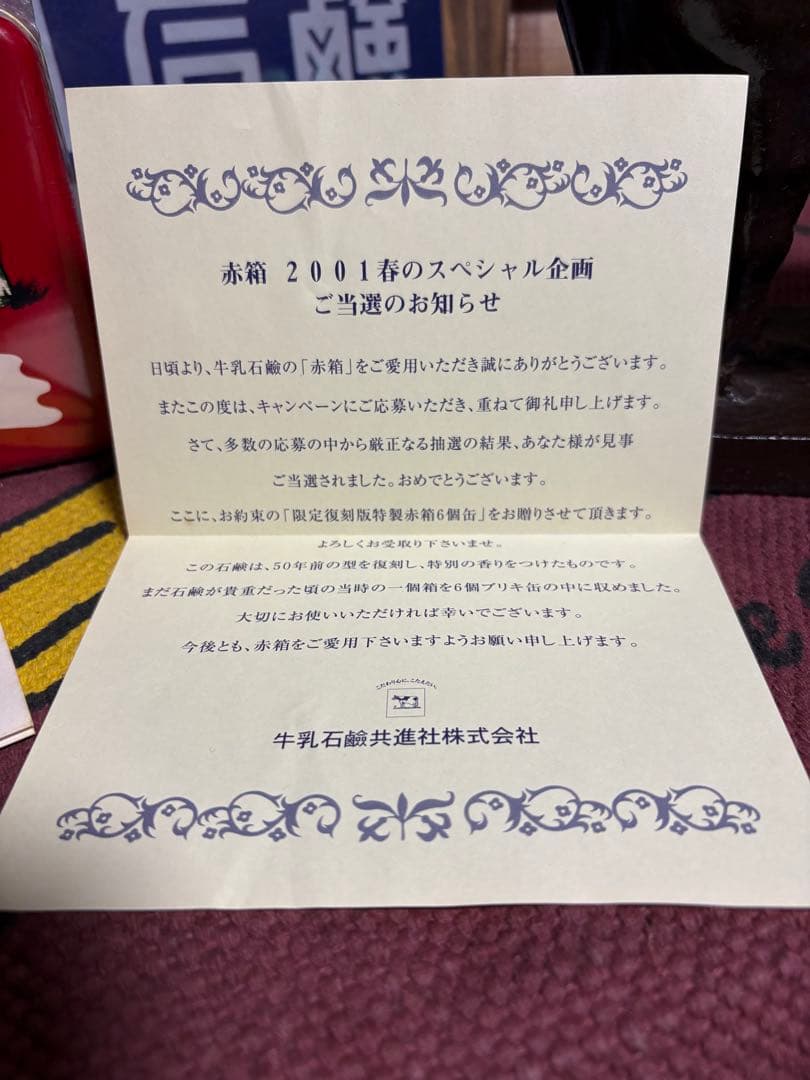 石鹸
赤箱 2001春のスペシャル企画
ご当選のお知らせ
日頃より、牛乳石鹸の「赤箱」をご愛用いただき誠にありがとうございます。
またこの度は、キャンペーンにご応募いただき、重ねて御礼申し上げます。
さて、多数の応募の中から厳正なる抽選の結果、あなた様が見事
ご当選されました。おめでとうございます。
ここに、お約束の「限定復刻版特製赤箱6個缶」をお贈りさせて頂きます。
よろしくお受取り下さいませ。
この石鹸は、50年前の型を復刻し、特別の香りをつけたものです。
まだ石鹸が貴重だった頃の当時の一個箱を6個ブリキ缶の中に収めました。
大切にお使いいただければ幸いでございます。
今後とも、赤箱をご愛用下さいますようお願い申し上げます。
こだわり心に、こたえたい。
牛乳石鹸共進社株式会社